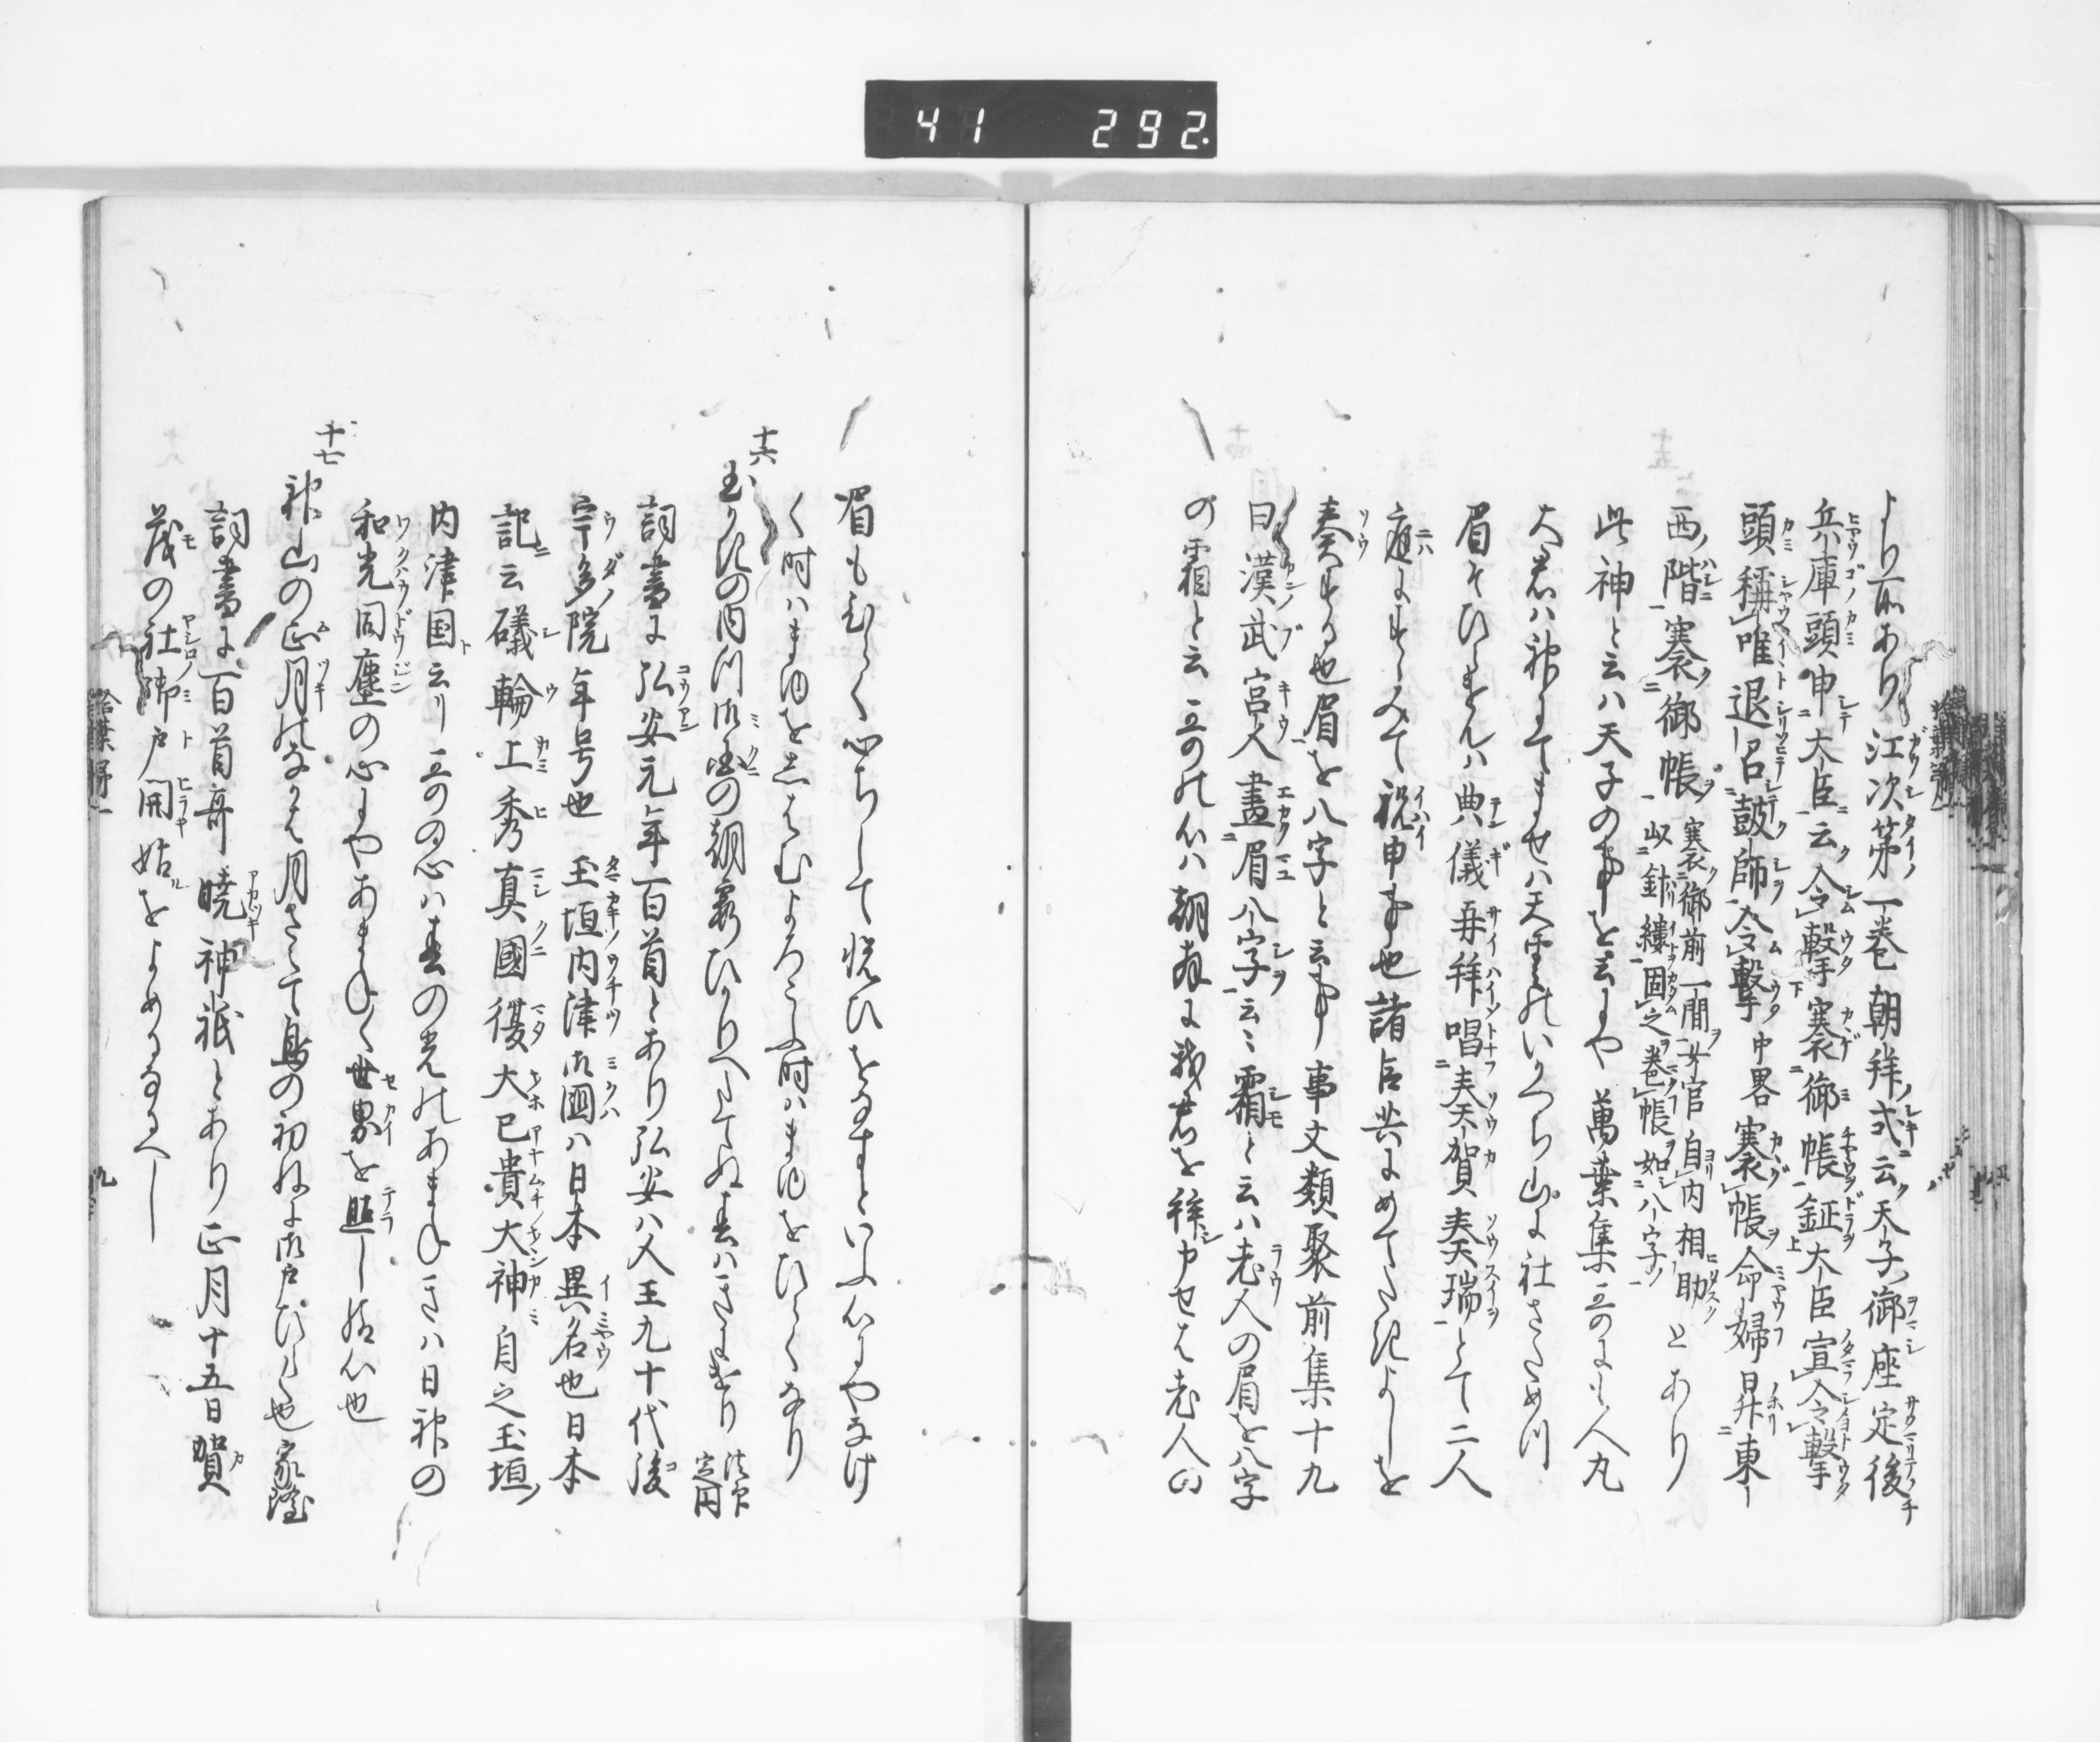 41 292.
より前あり江次第一巻朝拝式云天子御座定後
兵庫頭申大臣云令撃褰御帳鉦大臣宣令撃
頭稱唯退召鼓師令撃中畧褰帳命婦昇東
西階褰御帳褰御前一間女官自内相助とあり
以針縷固之巻帳如八字
此神と云ハ天子の事を云にや萬葉集哥にも人丸
大君ハ神にてませハ天雲のいかつち山に社さためつ
眉をひらきんハ典儀再拝唱奏賀奏瑞とて二人
庭にすゝみて祝申事也諸臣共にめてたきよしを
奏する也眉を八字と云事事文類聚前集十九
曰漢武宮人畫眉八字云々霜と云ハ老人の眉を八字
の霜と云哥の心ハ朝拝に我君を拝申せは老人の
眉もひらく心ちして悦ひをなすといふ心にやなけ
く時ハまゆをしはむよろこふ時ハまゆをひらくなり
十六
玉かきの内つ御国の朝霞ひかりへたてぬ春ハきにけり 法印定円
詞書に弘安元年百首とあり弘安ハ人王九十代後
宇多院年号也玉垣内津御國ハ日本異名也日本
記云礒輪上秀真國復大已貴大神自之玉垣
内津国云リ哥の心ハ春の光のあまねきハ日神の
和光同塵の心にやあまねく世界を照し給心也
十七
神山の正月のなかは月さえて鳥の初ねに御戸ひらく也 家隆
詞書に百首哥暁神祇とあり正月十五日賀
茂の社御戸開始をよめるなるへし
九